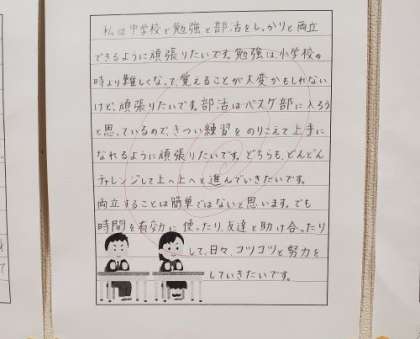 私は中学校で勉強と部活をしっかりと両立
できるように頑張りたいです。勉強は、小学校の
時より難しくなって、覚えることが大変かもしれない
けど、頑張りたいです。部活はバスケ部に入ろう
と思っているので、きつい練習をのりこえて上手に
なれるように頑張りたいです。どちらも、どんどん
チャレンジして上へ上へと進んでいきたいです。
両立することは簡単ではないと思います。でも
時間を有効に使ったり、友達と助け合ったり
して、日々、コツコツと努力を
していきたいです。